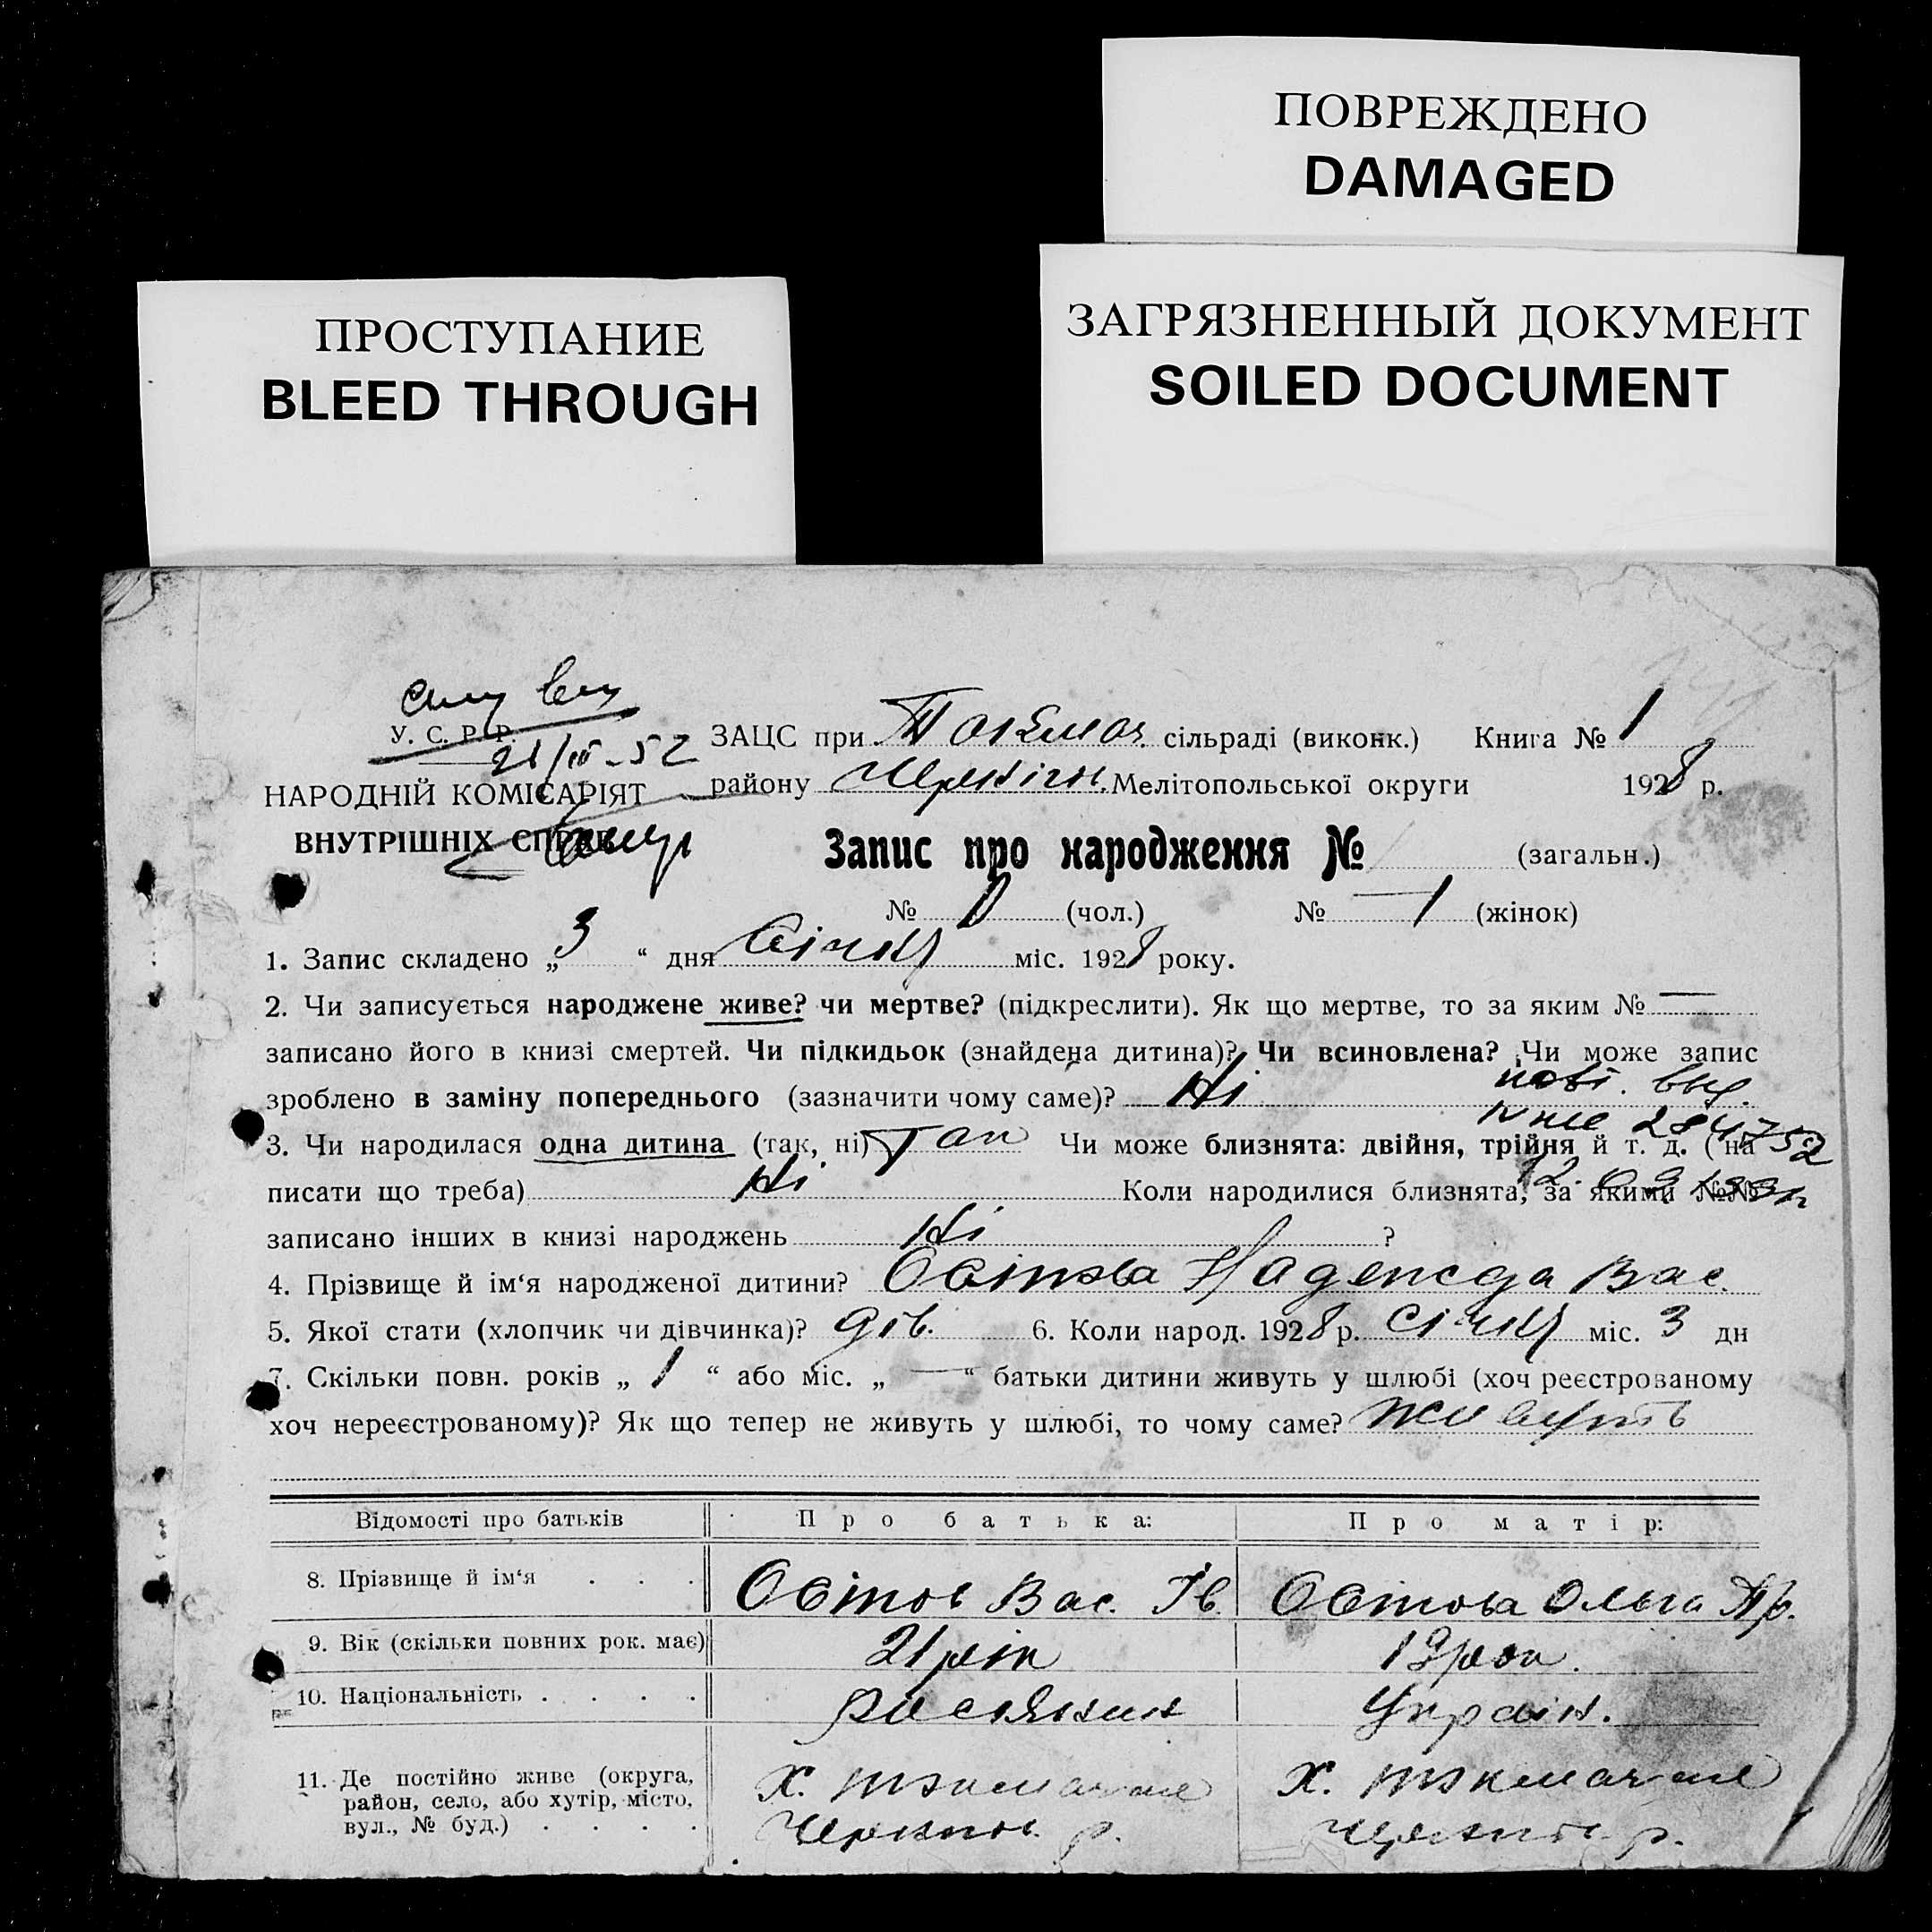 ПОВРЕЖДЕНО
DAMAGED
ПРОСТУПАНИЕ
BLEED THROUGH
ЗАГРЯЗНЕННЫЙ ДОКУМЕНТ
SOILED DOCUMENT
У. С. Р. Р.
21/III-52
НАРОДНІЙ КОМІСАРІЯТ
ВНУТРІШНІХ СПРАВ
ЗАЦС при Токмач. сільраді (виконк.) Книга № 1
району Чернігів. Мелітопольської округи 1928 р.
Запис про народження № (загальн.)
№ 0 (чол.) № 1 (жінок)
1. Запис складено „ 3 “ дня Січня міс. 1928 року.
2. Чи записується народжене живе? чи мертве? (підкреслити). Як що мертве, то за яким № —
записано його в книзі смертей. Чи підкидьок (знайдена дитина)? Чи всиновлена? Чи може запис
зроблено в заміну попереднього (зазначити чому саме)? Ні
3. Чи народилася одна дитина (так, ні) Так Чи може близнята: двійня, трійня й т. д. (на
писати що треба) Ні Коли народилися близнята, за якими №№
записано інших в книзі народжень Ні ?
4. Прізвище й ім‘я народженої дитини? Світова Надежда Вас.
5. Якої стати (хлопчик чи дівчинка)? дів. 6. Коли народ. 1928 р. Січня міс. 3 дн
7. Скільки повн. років „ 1 “ або міс. „ — “ батьки дитини живуть у шлюбі (хоч реєстрованому
хоч нереєстрованому)? Як що тепер не живуть у шлюбі, то чому саме? живуть
Відомості про батьків Про батька: Про матір:
8. Прізвище й ім‘я . . . Світов Вас. Ів. Світова Ольга
9. Вік (скільки повних рок. має) 21 рік 19 рок.
10. Національність . . . . Росіянин Україн.
11. Де постійно живе (округа, район, село, або хутір, місто, вул., № буд.) . . . .
Х. Токмачче Х. Токмачче
Чернігов. р. Чернігов. р.